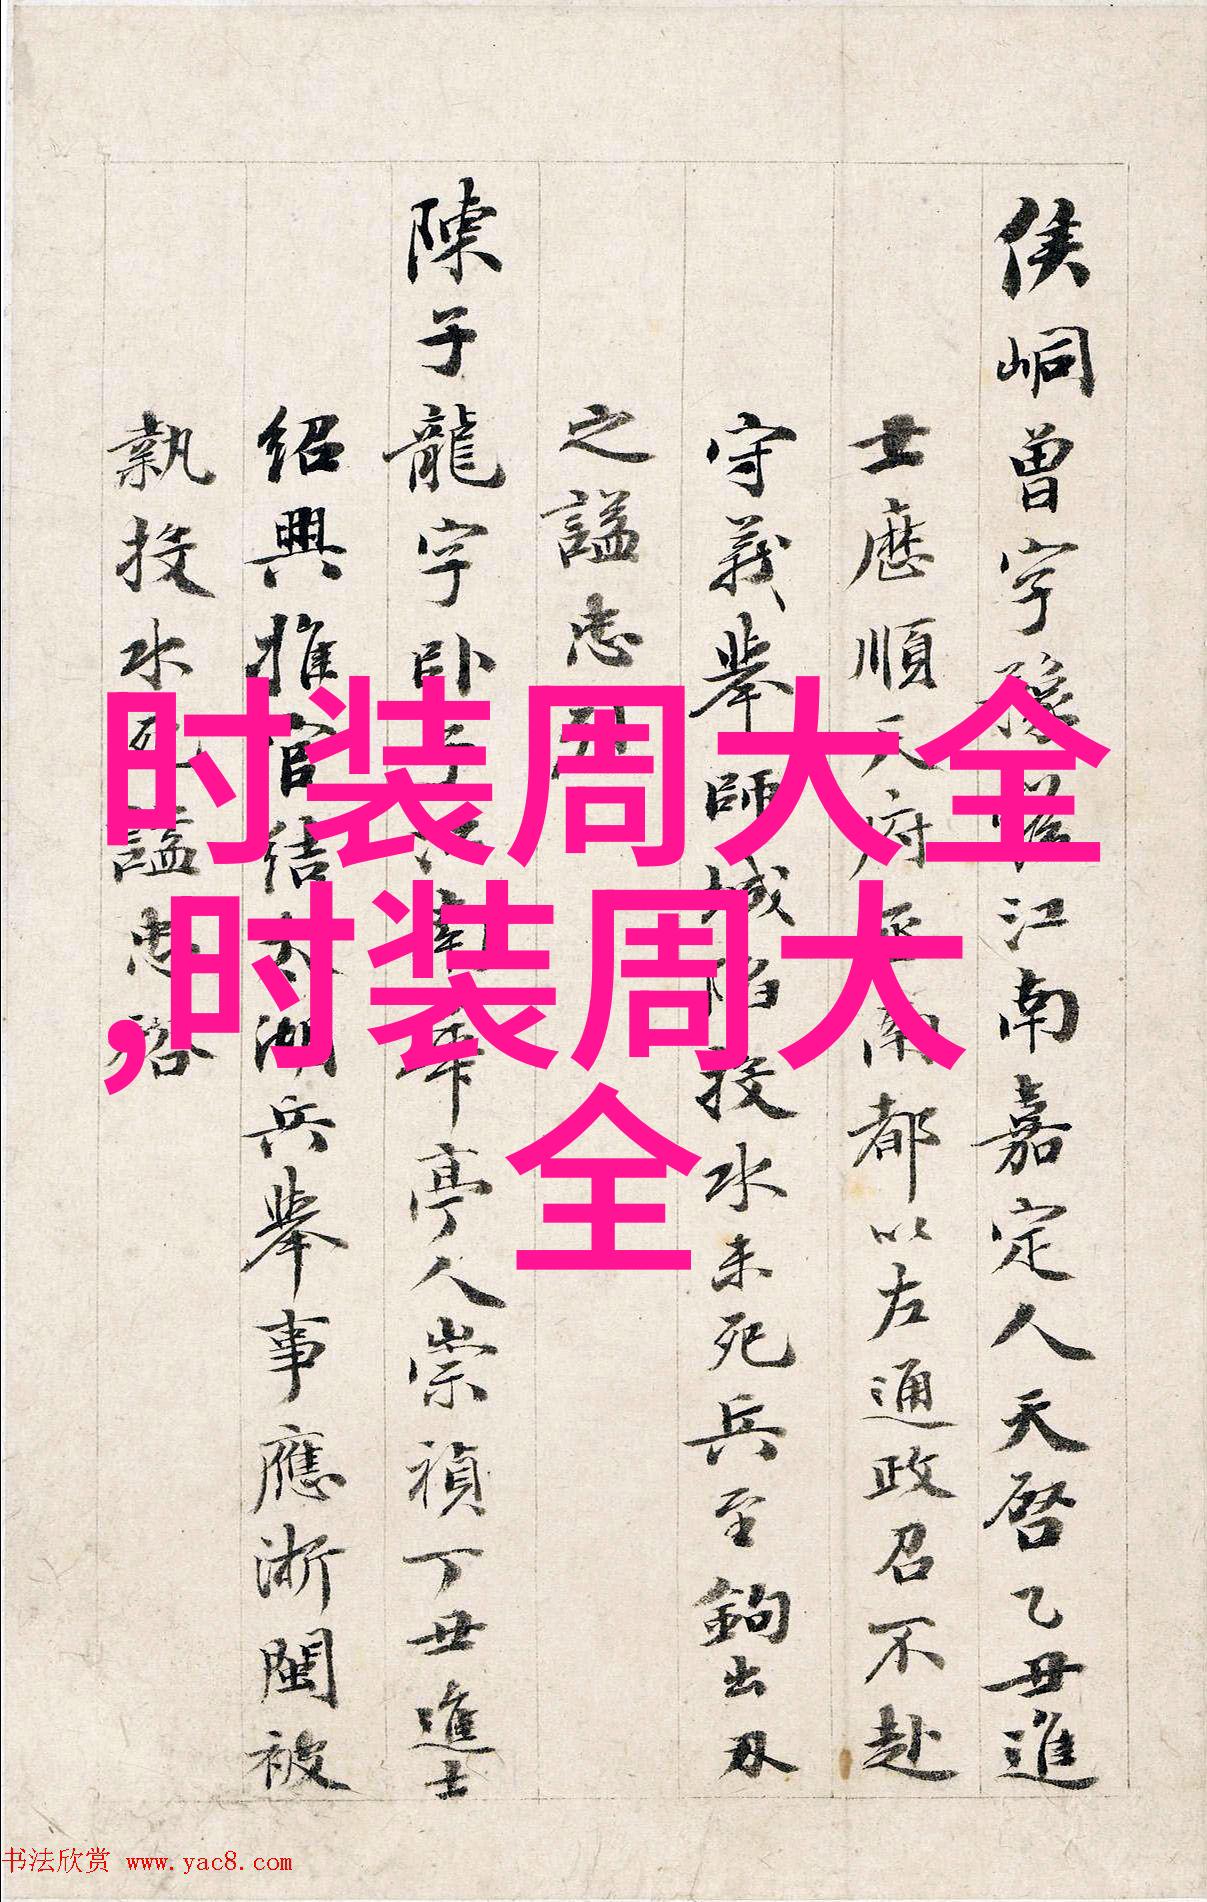 侯峒曾字豫瞻江南嘉定人天啓乙丑進
士歷順天府丞南都以左通政召不赴
守義舉師城陷投水未死兵至鉤出刃
之謚忠
陳子龍字臥子江南華亭人崇禎丁丑進士
紹興推官結太湖兵舉事應浙閩被
執投水死謚忠裕
时装周大全
,时装周大
全
书法欣赏 www.yac8.com